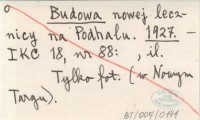 Budowa nowej lecz-
nicy na Podhalu. 1927. —
IKC 18, nr 88:    , il.
Tylko fot. (w Nowym
Targu).
BJ/004/0499